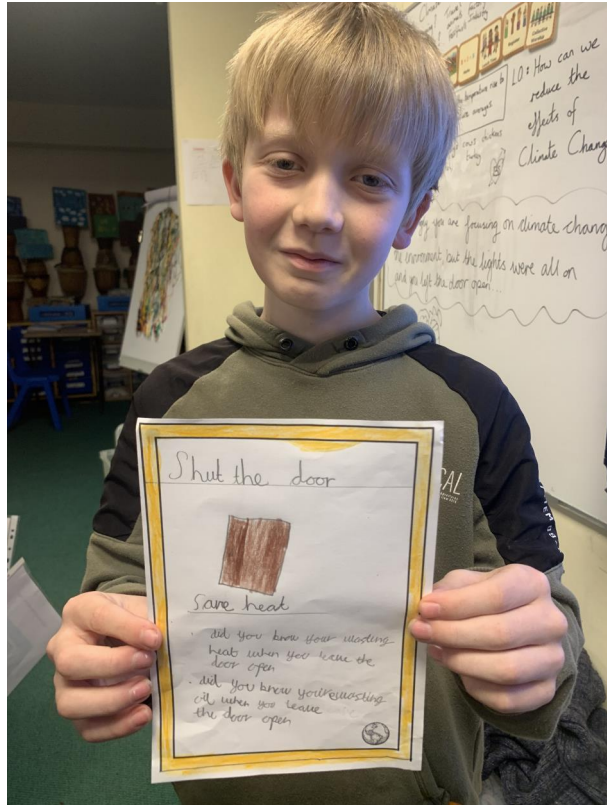 LO: How can we
reduce the
effects of
Climate Chang
temperature rise to
you are focusing on climate chang
the environment, but the lights were all on
and you left the door open...
CAL
Shut the door
Save heat
- did you know your wasting
heat when you leave the
door open
- did you know you're wasting
oil when you leave
the door open